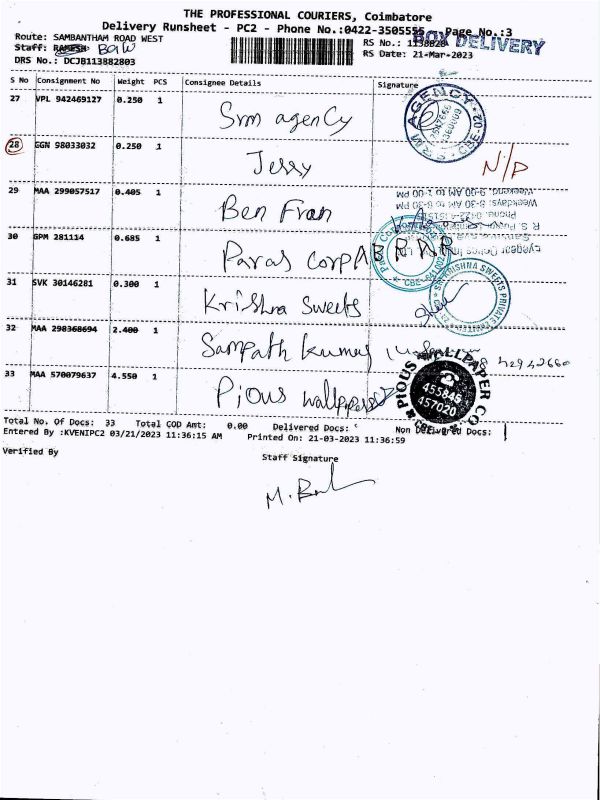 THE PROFESSIONAL COURIERS, Coimbatore
Delivery Runsheet - PC2 - Phone No.:0422-3505555 Page No.:3
BOX DELIVERY
Route: SAMBANTHAM ROAD WEST
RS No.: 1138828
Staff: RAMESH
RS Date: 21-Mar-2023
DRS No.: DCJB113882803
S No Consignment No Weight PCS Consignee Details Signature
27 VPL 942469127 0.250 1 Srm agency
28 GGN 98033032 0.250 1 Jerry N/P
29 MAA 299057517 0.405 1 Ben Fran
30 GPM 281114 0.685 1 Paras Corp
31 SVK 30146281 0.300 1 Krishna Sweets
32 MAA 298368694 2.400 1 Sampath kumar
33 MAA 570079637 4.550 1 Pious wallpapers
AGENCY CBE-02
Weekend: 9-00 AM to 1-00 PM
Weekdays: 8-30 AM to 8-30 PM
SRI KRISHNA SWEETS PRIVATE LIMITED
PIOUS WALLPAPER CO
457020
Total No. Of Docs: 33 Total COD Amt: 0.00 Delivered Docs: Non Delivered Docs: 1
Entered By :KVENIPC2 03/21/2023 11:36:15 AM Printed On: 21-03-2023 11:36:59
Verified By
Staff Signature